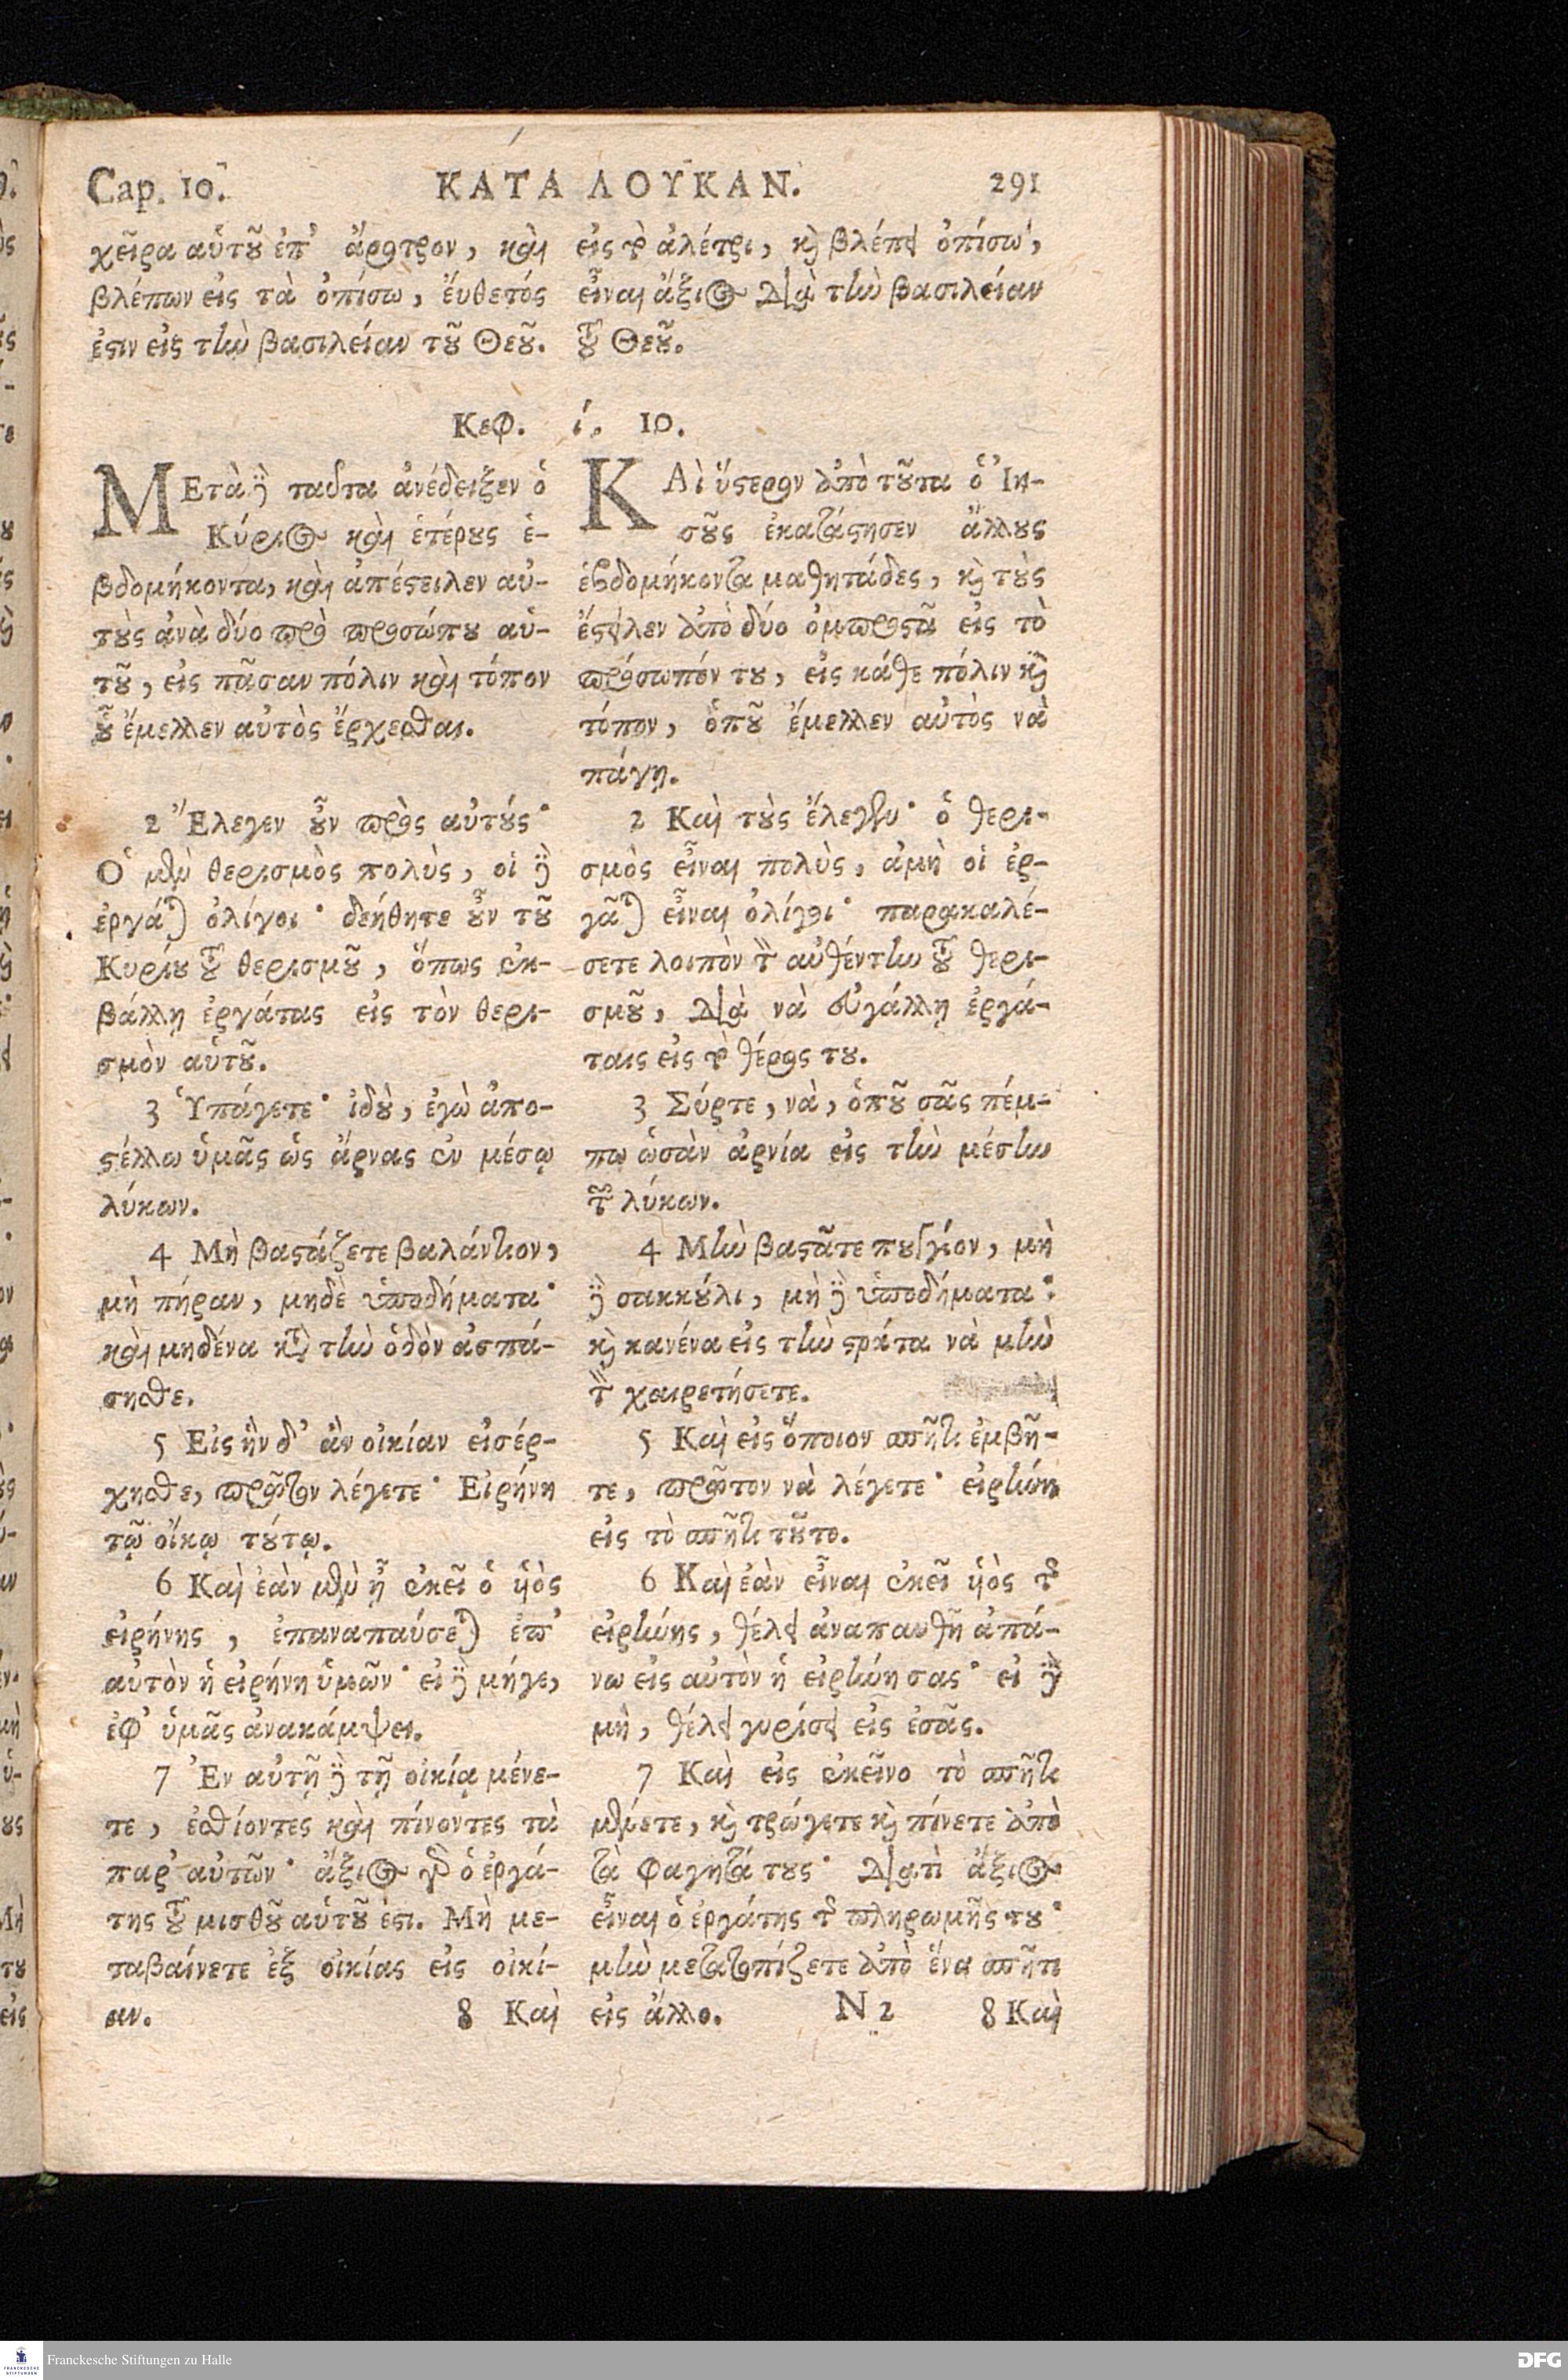 Cap. 10.
ΚΑΤΑ ΛΟΥΚΑΝ.
291
χεῖρα αὑτοῦ ἐπ' ἄροτρον, καὶ
βλέπων εἰς τὰ ὀπίσω, ἔυθετός
ἐστιν εἰς τὴν βασιλείαν τοῦ Θεοῦ.
εἰς τὸ ἀλέτρι, καὶ βλέπει ὀπίσω,
εἶναι ἄξιος διὰ τὴν βασιλείαν
τοῦ Θεοῦ.
Κεφ. ί. 10.
ΜΕτὰ δὲ ταῦτα ἀνέδειξεν ὁ
Κύριος καὶ ἑτέρους ἑ-
βδομήκοντα, καὶ ἀπέστειλεν αὐ-
τοὺς ἀνὰ δύο πρὸ προσώπου αὑ-
τοῦ, εἰς πᾶσαν πόλιν καὶ τόπον
οὗ ἔμελλεν αὐτὸς ἔρχεσθαι.
2 Ἔλεγεν οὖν πρὸς αὐτούς·
Ὁ μὲν θερισμὸς πολὺς, οἱ δὲ
ἐργάται ὀλίγοι· δεήθητε οὖν τοῦ
Κυρίου τοῦ θερισμοῦ, ὅπως ἐκ-
βάλλῃ ἐργάτας εἰς τὸν θερι-
σμὸν αὑτοῦ.
3 Ὑπάγετε· ἰδοὺ, ἐγὼ ἀπο-
στέλλω ὑμᾶς ὡς ἄρνας ἐν μέσῳ
λύκων.
4 Μὴ βαστάζετε βαλάντιον,
μὴ πήραν, μηδὲ ὑποδήματα·
καὶ μηδένα κατὰ τὴν ὁδὸν ἀσπά-
σησθε.
5 Εἰς ἣν δ' ἂν οἰκίαν εἰσέρ-
χησθε, πρῶτον λέγετε· Εἰρήνη
τῷ οἴκῳ τούτῳ.
6 Καὶ ἐὰν μὲν ᾖ ἐκεῖ ὁ υἱὸς
εἰρήνης, ἐπαναπαύσεται ἐπ'
αὐτὸν ἡ εἰρήνη ὑμῶν· εἰ δὲ μήγε,
ἐφ' ὑμᾶς ἀνακάμψει.
7 Ἐν αὐτῇ δὲ τῇ οἰκίᾳ μένε-
τε, ἐσθίοντες καὶ πίνοντες τὰ
παρ' αὐτῶν· ἄξιος γὰρ ὁ ἐργά-
της τοῦ μισθοῦ αὑτοῦ ἐστι. Μὴ με-
ταβαίνετε ἐξ οἰκίας εἰς οἰκί-
αν.
8 Καὶ
ΚΑὶ ὕστερον ἀπὸ τοῦτα ὁ Ἰη-
σοῦς ἐκατάστησεν ἄλλους
ἑβδομήκοντα μαθητάδες, καὶ τοὺς
ἔστειλεν ἀπὸ δύο ὀμπροστᾶ εἰς τὸ
πρόσωπόν του, εἰς κάθε πόλιν καὶ
τόπον, ὁποῦ ἔμελλεν αὐτὸς νὰ
πάγῃ.
2 Καὶ τοὺς ἔλεγεν· ὁ θερι-
σμὸς εἶναι πολὺς, ἀμὴ οἱ ἐρ-
γᾶται εἶναι ὀλίγοι· παρακαλέ-
σετε λοιπὸν τὸν αὐθέντην τοῦ θερι-
σμοῦ, διὰ νὰ εὐγάλλῃ ἐργά-
ταις εἰς τὸ θέρος του.
3 Σύρτε, νὰ, ὁποῦ σᾶς πέμ-
πω ὡσὰν ἀρνία εἰς τὴν μέσην
τῶν λύκων.
4 Μὴν βαστᾶτε πουγγίον, μὴ
δὲ σακκούλι, μὴ δὲ ὑποδήματα·
καὶ κανένα εἰς τὴν στράτα νὰ μὴν
τὸν χαιρετήσετε.
5 Καὶ εἰς ὅποιον σπῆτι ἐμβῆ-
τε, πρῶτον νὰ λέγετε· εἰρήνη
εἰς τὸ σπῆτι τοῦτο.
6 Καὶ ἐὰν εἶναι ἐκεῖ υἱὸς τῆς
εἰρήνης, θέλει ἀναπαυθῆ ἀπά-
νω εἰς αὐτὸν ἡ εἰρήνη σας· εἰ δὲ
μὴ, θέλει γυρίσει εἰς ἐσᾶς.
7 Καὶ εἰς ἐκεῖνο τὸ σπῆτι
μένετε, καὶ τρώγετε καὶ πίνετε ἀπὸ
τὰ φαγητά τους· διατὶ ἄξιος
εἶναι ὁ ἐργάτης τῆς πληρωμῆς του·
μὴν μετατοπίζετε ἀπὸ ἕνα σπῆτι
εἰς ἄλλο.
N 2
8 Καὶ
Franckesche Stiftungen zu Halle
DFG